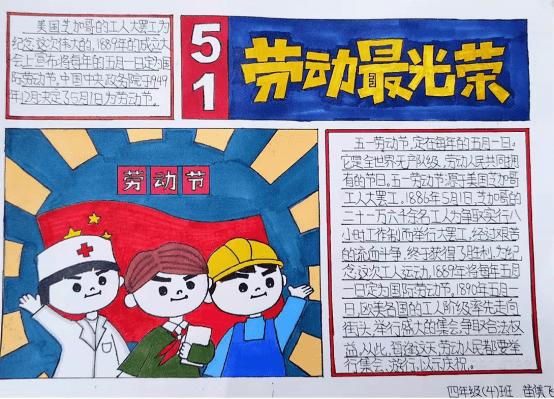 美国芝加哥的工人大罢工,为
纪念这次伟大的,1889年的成立大
会上宣布将每年的五月一日定为国
际劳动节。中国中央政务院于1949
年12月决定了5月1日为劳动节。
5
1
劳动最光荣
劳动节
五一劳动节,定在每年的五月一日,
它是全世界无产阶级、劳动人民共同拥
有的节日。五一劳动节源于美国芝加哥
工人大罢工,1886年5月1日,芝加哥的
二十一万六千余名工人为争取实行八
小时工作制而举行大罢工,经过艰苦
的流血斗争,终于获得了胜利。为纪
念这次工人运动,1889年将每年五月
一日定为国际劳动节。1890年五月一
日,欧美各国的工人阶级率先走向
街头,举行盛大的集会,争取合法权
益,从此,每逢这天,劳动人民都要举
行集会、游行,以示庆祝。
四年级(4)班 苗倩飞